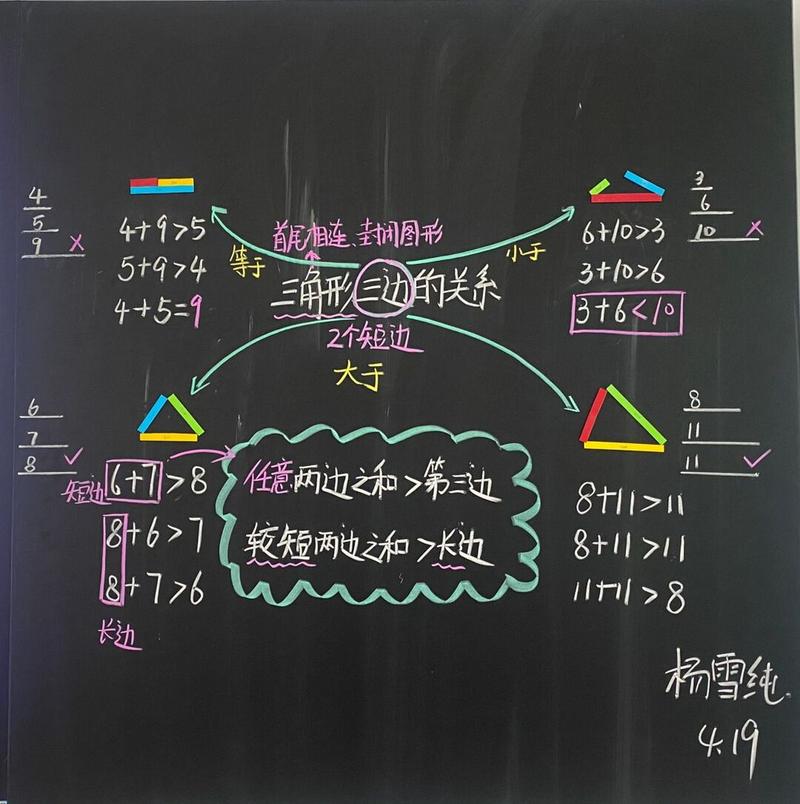 4
5
9 ×
4+9>5
5+9>4
4+5=9
等于
首尾相连、封闭图形
小于
6+10>3
3+10>6
3+6<10
3
6
10 ×
三角形三边的关系
2个短边
大于
6
7
8 ✓
短边 6+7>8
8+6>7
8+7>6
长边
任意两边之和>第三边
较短两边之和>长边
8
11
11 ✓
8+11>11
8+11>11
11+11>8
杨雪纯
4.19